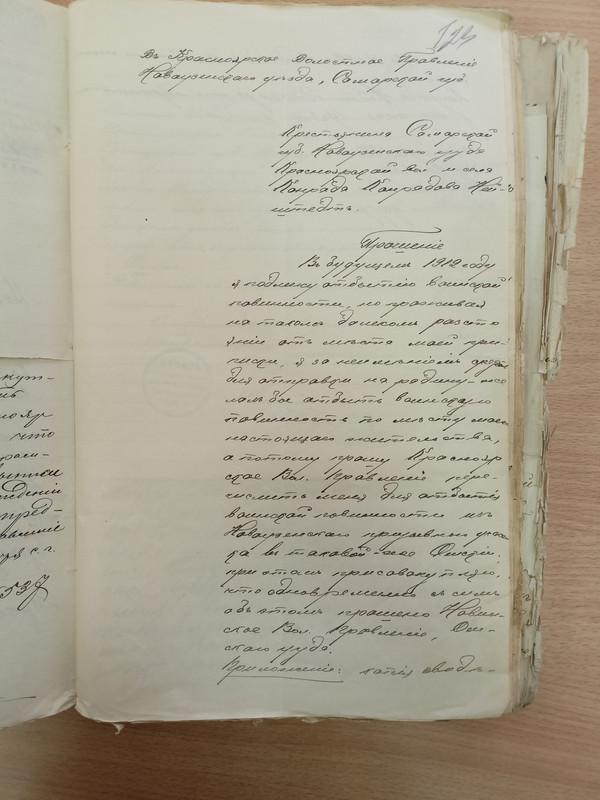 123
Въ Красноярское Волостное Правленіе
Новоузенскаго уѣзда, Самарской губ.
Крестьянина Самарской
губ. Новоузенскаго уѣзда
Красноярской вол. и села
Конрада Конрадова Ней-
штедтъ.
Прошеніе
Въ будущемъ 1912 году
я подлежу отбытію воинской
повинности, но проживая
на такомъ далекомъ разсто
яніи отъ мѣста моей при-
писки, я за неимѣніемъ средствъ
для отправки на родину, же
лалъ бы отбыть воинскую
повинность по мѣсту моего
настоящаго жительства,
а потому прошу Краснояр
ское Вол. Правленіе пере-
числить меня для отбытія
воинской повинности изъ
Новоузенскаго призывного участ
ка въ таковой-же Ошскій,
при этомъ присовокупляю,
что одновременно съ симъ
объ этомъ прошено
ское Вол. Правленіе, Ош-
скаго уѣзда.
Приложеніе: копія
кут-
нояр
что
предѣ-
с. г.
537